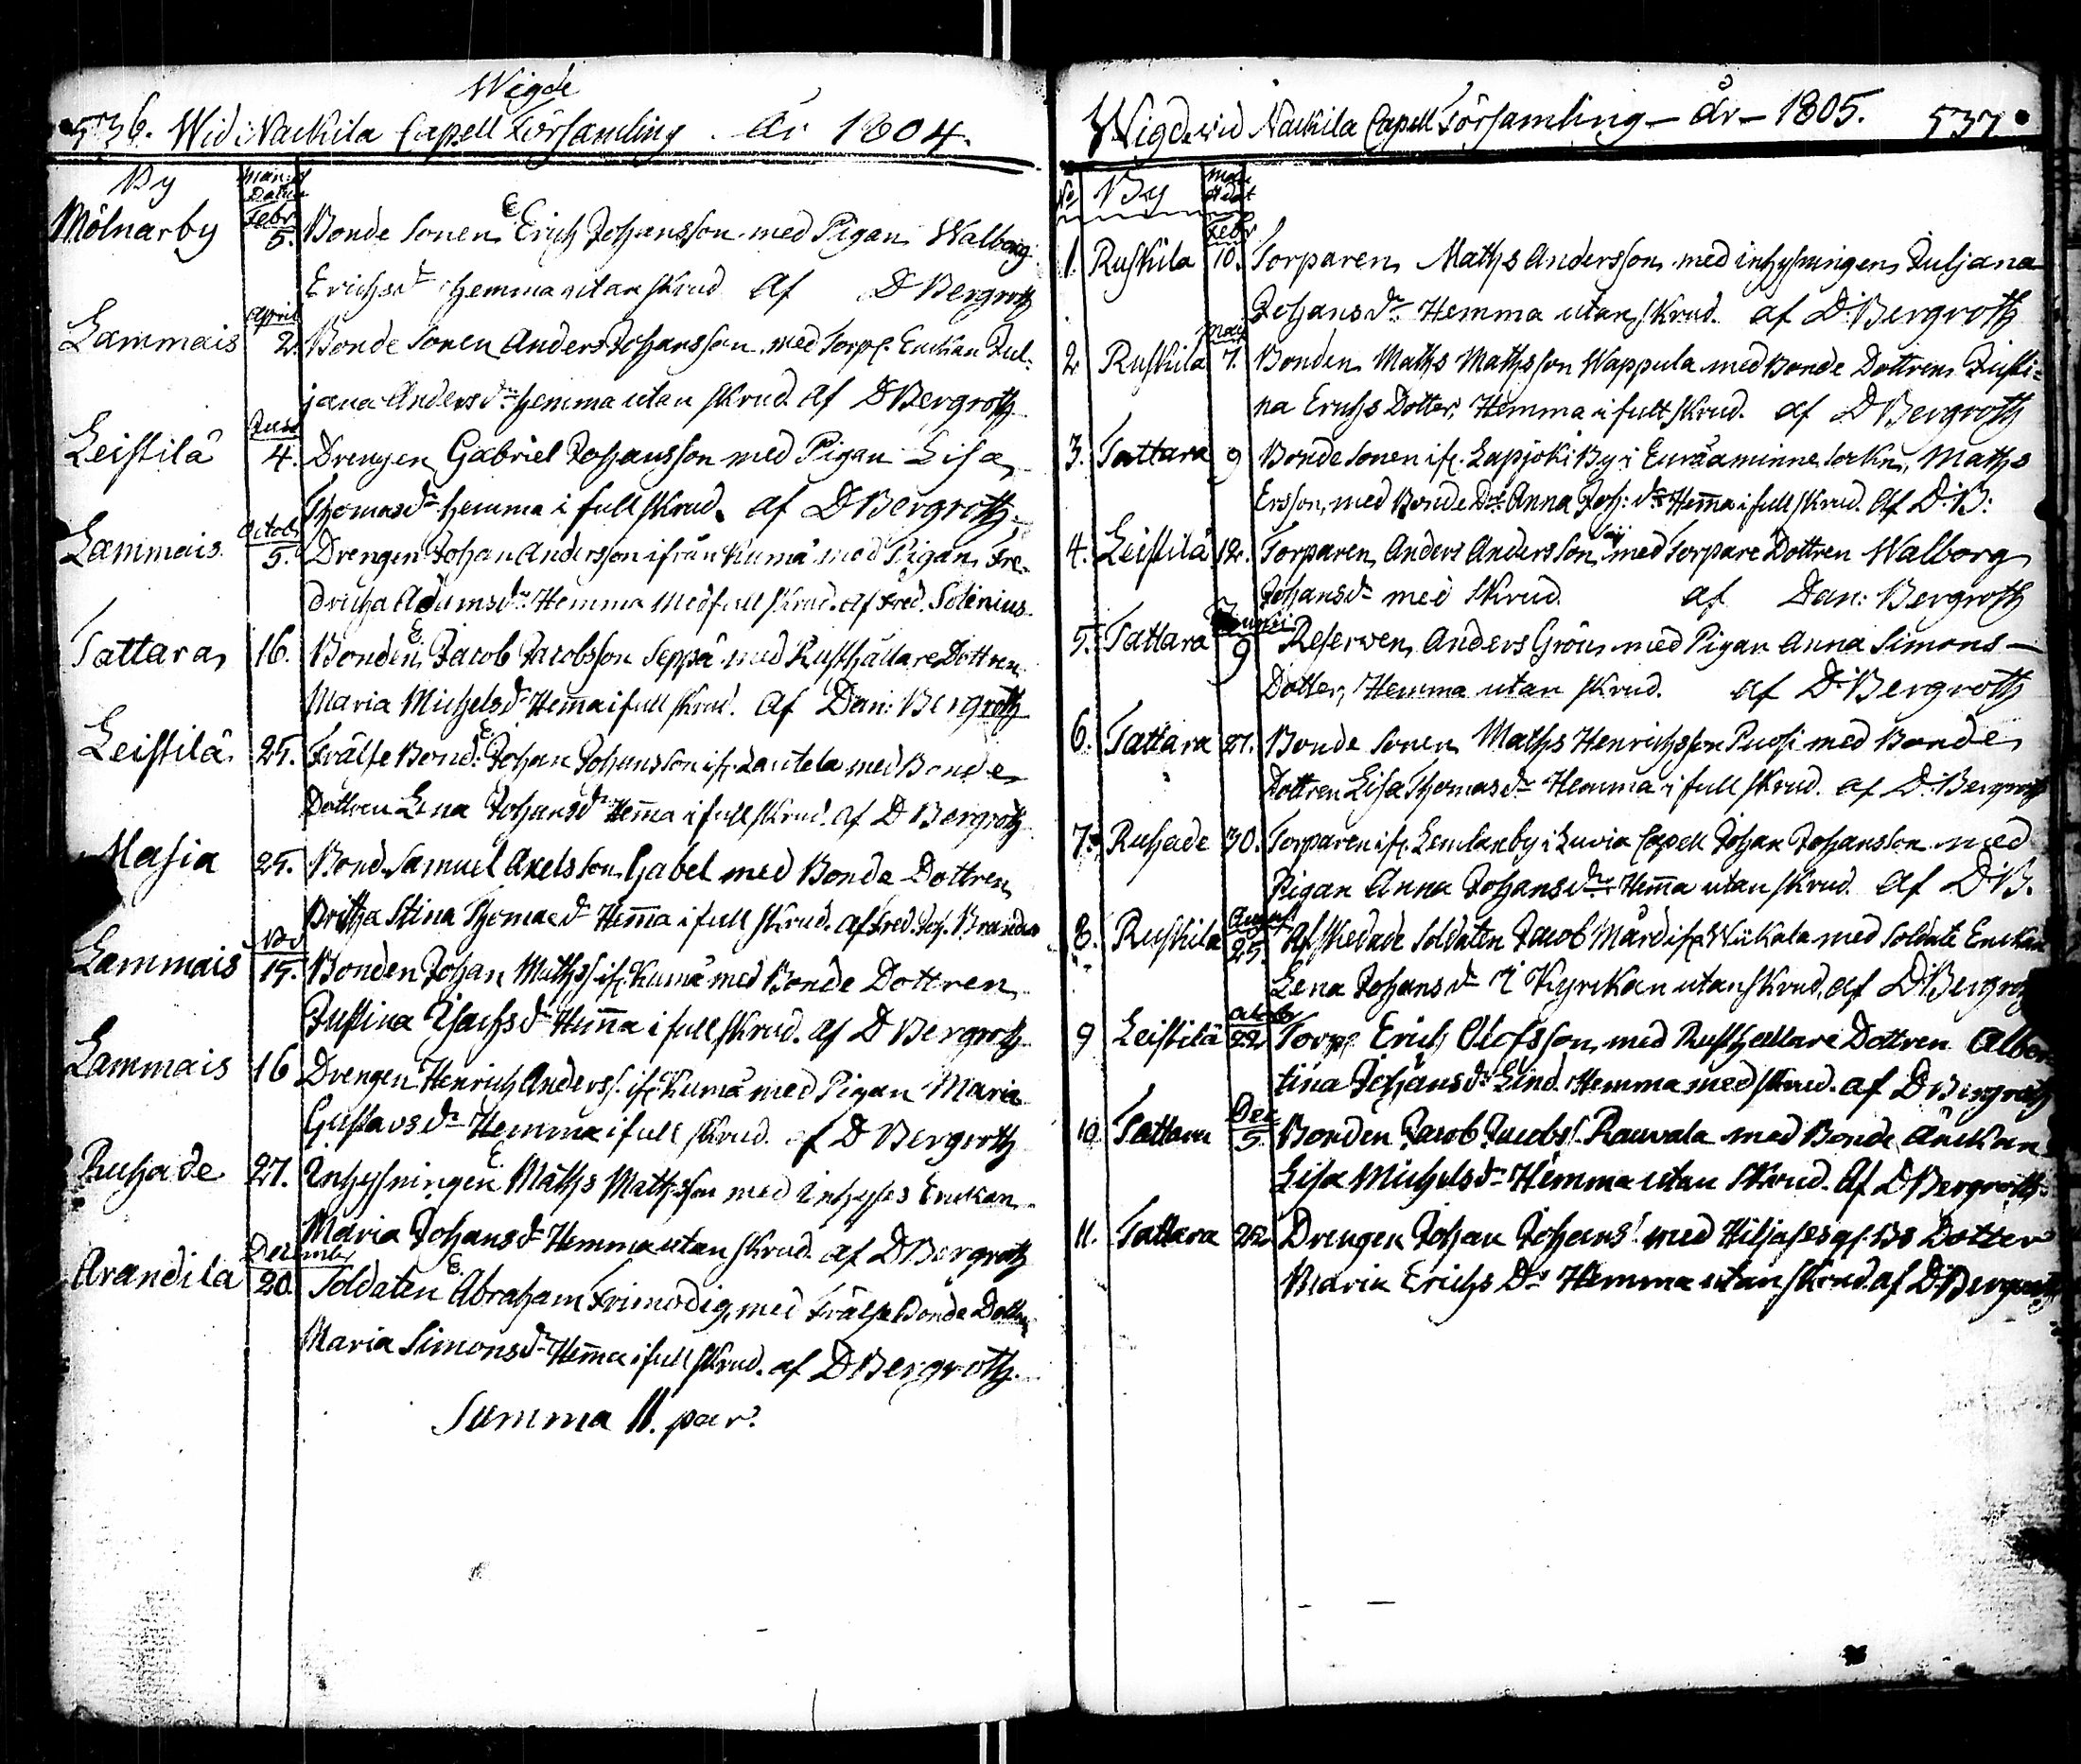 Wigde
536. Wid Nackila Capell Församling. år 1804.
By
Mån: Datum
Febr
Mölnarby 5. Bonde Sonen Erich Johansson med Pigan Walborg
Erichsdr hemma utan skrud af D Bergroth
April
Lammais 2. Bonde Sonen Anders Johansson med Torp. Enckan Jul-
jana Andersdr hemma utan skrud af D Bergroth
Leistilä 4. Drengen Gabriel Johansson med Pigan Lisa
Thomasdr hemma i full skrud. af D Bergroth
Octob
Lammais 5. Drengen Johan Andersson ifrån Kumå med Pigan Fre-
dricha Adamsdr Hemma med full skrud. af Fred. Solenius
Tattara 16. Bonden Jacob Jacobsson Seppä med Rusthållare Dottren
Maria Michelsdr Hem̄a i full skrud. af Dan: Bergroth
Leistilä 25. Frälse Bond. Johan Johansson ifr. Lautela med Bonde
Dottren Lena Johansdr Hem̄a i full skrud. af D Bergroth
Masia 25. Bond. Samuel Axelsson Gabel med Bonde Dottren
Britha Stina Thomaedr Hem̄a i full skrud. af Fred. Joh. Brander
Lammais 15. Bonden Johan Mathss. ifr. Kumå med Bonde Dottren
Justina Isachsdr Hem̄a i full skrud. af D Bergroth
Lammais 16 Drengen Henrich Anderss. ifr. Kumå med Pigan Maria
Gustavsdr Hemma i full skrud. af D Bergroth
Ruhade 27. Inhysningen Maths Mathsson med Inhyses Enckan
Maria Johansdr Hemma utan skrud. af D Bergroth
Decembr
Arandila 20. Soldaten Abraham Frimodig, med Frälse Bonde Dottren
Maria Simonsdr Hem̄a i full skrud. af D Bergroth.
Summa 11. par.
Wigde wid Nackila Capell Församling – år – 1805. 537
No By
Febr
1. Ruskila 10. Torparen Maths Andersson med inhysningen Juljana
Johansdr Hemma utan skrud. af D: Bergroth
Maij
2 Ruskila 7. Bonden Maths Mathsson Wappula med Bonde Dottren Justi-
na Erichs Dotter, Hemma i fult skrud. af D Bergroth
3. Tattara 9 Bonde Sonen ifr. Lapjoki By i Euraåminne Sockn, Maths
Ersson, med Bonde Dr. Anna Joh: dr Hem̄a i full skrud. af D: B:
4. Leistilä 12. Torparen Anders Andersson med Torpare Dottren Walborg
Johansdr med Skrud. af Dan: Bergroth
Junii
5. Tattara 9 Reserwen Anders Grön med Pigan Anna Simons –
Dotter, Hemma utan skrud. af D: Bergroth
6. Tattara 27. Bonde Sonen Maths Henrichsson Puosi med Bonde
Dottren Lisa Thomasdr Hemma i full skrud. af D: Bergroth
7. Ruhade 30. Torparen ifr. Lemlaxby i Luvia Capell Johan Johansson med
Pigan Anna Johansdr Hem̄a utan skrud. af D: B.
August
8. Ruskila 25. Afskedade Soldaten Jacob Mård ifr. Wiikala med Soldate Enckan
Lena Johansdr i Kyrckan utan skrud, af D: Bergroth
9 Leistilä 22. Torp. Erich Olofsson, med Rusthållare Dottren Alber
tina Johansdr Lind. Hemma med skrud. af D Bergroth
Dec
10 Tattara 5. Bonden Jacob Jacobs. Rauvala med Bonde Änckan
Lisa Michelsdr Hemma utan Skrud. af D Bergroth
11. Tattara 22. Drengen Johan Johans. med Bo Dotter
Maria Erichs Dr Hemma utan skrud af D: Bergroth